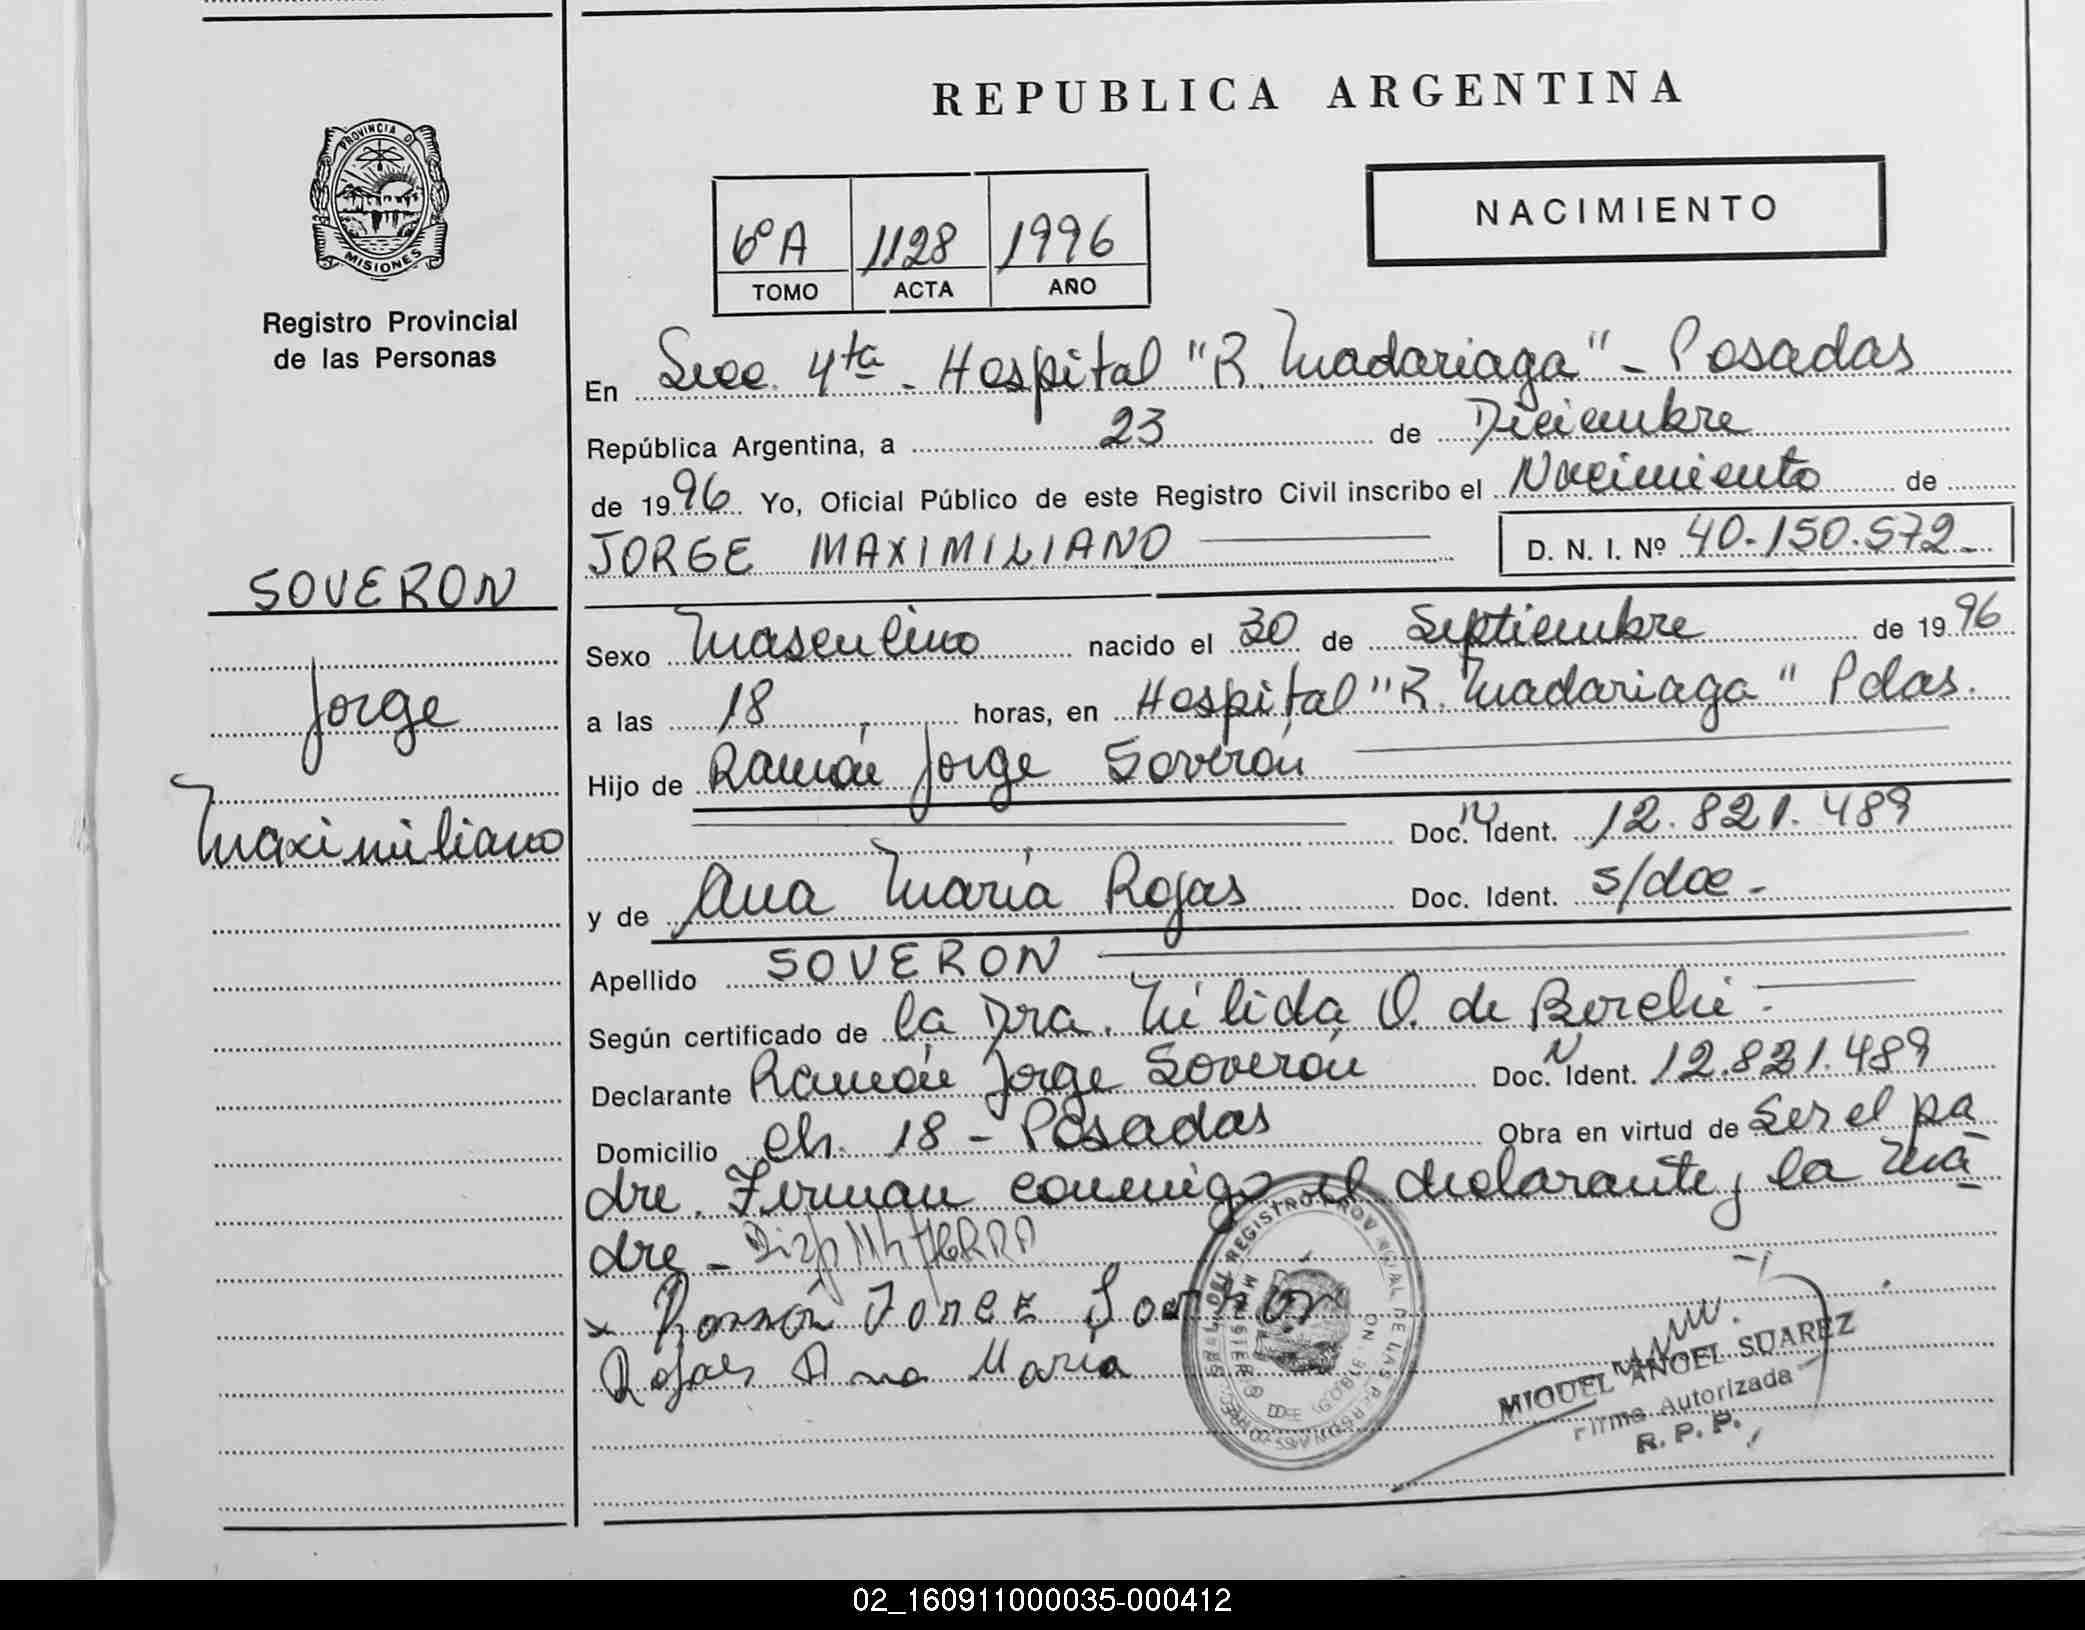 REPUBLICA ARGENTINA
PROVINCIA DE MISIONES
Registro Provincial
de las Personas
6º A 1128 1996
TOMO ACTA AÑO
NACIMIENTO
En Secc. 4ta - Hospital "R. Madariaga" - Posadas
República Argentina, a 23 de Diciembre
de 1996 Yo, Oficial Público de este Registro Civil inscribo el Nacimiento de
JORGE MAXIMILIANO D. N. I. Nº 40.150.572
SOVERON
Jorge
Maximiliano
Sexo Masculino nacido el 30 de Septiembre de 1996
a las 18 horas, en Hospital "R. Madariaga" Pdas.
Hijo de Ramón Jorge Soverón
Doc. N Ident. 12.821.489
y de Ana María Rojas Doc. Ident. s/doc -
Apellido SOVERON
Según certificado de la Dra. Nélida O. de
Declarante Ramón Jorge Soverón Doc. N Ident. 12.821.489
Domicilio Ch. 18 - Posadas Obra en virtud de Ser el pa
dre. Firman conmigo el declarante y la ma
dre -
x Ramón Jorge Soverón
Rojas Ana María
MIGUEL ANGEL SUAREZ
Firma Autorizada
R. P. P.
02_160911000035-000412